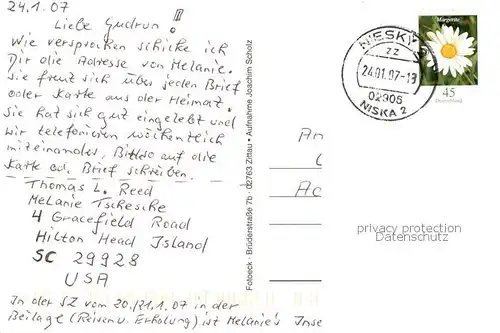 24.1.07
Liebe Gudrun!
Wie versprochen schicke ich
Dir die Adresse von Melanie.
Sie freut sich über jeden Brief
oder Karte aus der Heimat.
Sie hat sich gut eingelebt und
wir telefonieren wöchentlich
miteinander. Bitte auf die
Karte od. Brief schreiben.
Thomas L. Reed
Melanie Tschesche
4 Gracefield Road
Hilton Head Island
SC 29928
USA
In der SZ vom 20./21.1.07 in der
Beilage (Reisen u. Erholung) ist Melanie's Inse
Fotoeck · Brüderstraße 7b · 02763 Zittau · Aufnahme Joachim Scholz
NIESKY
zz
24.01.07-18
02906
NISKA 2
Margerite
45
Deutschland
An
privacy protection
Datenschutz